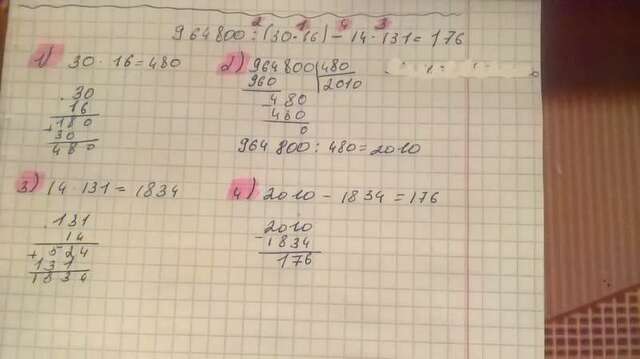 2 1 4 3
964800:(30·16)-14·131=176
1) 30·16=480
30
16
180
+
30
480
2) 964800 480
960 2010
480
480
0
964 800: 480=2010
3) 14·131=1834
131
14
+524
131
1834
4) 2010-1834=176
2010
-1834
176